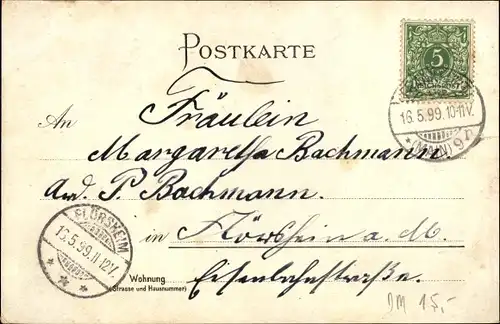 POSTKARTE
5
16.5.99.10-11V.
(MAIN) 9
An Fräulein
Margaretha Bachmann
Adr. P. Bachmann.
in Flörsheim a. M.
FLÖRSHEIM
16.5.99.11-12V.
Wohnung
(Strasse und Hausnummer)
Eisenbahnstraße.
DM 15,-